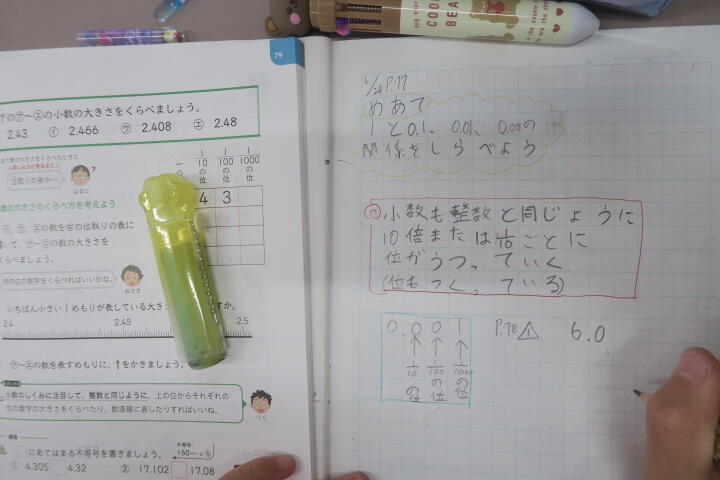 79
下の㋐〜㋓の小数の大きさをくらべましょう。
2.43 ㋑ 2.466 ㋒ 2.408 ㋓ 2.48
位取りの表や…。
はると
一の
1/10の位
1/100の位
1/1000の位
4 3
数の大きさのくらべ方を考えよう。
㋒、㋓の数を右の位取りの表に
書いて、㋐〜㋓の数の大きさを
くらべましょう。
何の位の数字をくらべればいいかな。
みさき
いちばん小さい1めもりが表している大き
すか。
2.4 2.45 2.5
㋐〜㋓の数を表すめもりに、↑をかきましょう。
小数のしくみに注目して、整数と同じように、上の位からそれぞれの
位の数字の大きさをくらべたり、数直線に表したりすればいいね。
りく
□にあてはまる不等号を書きましょう。
不等号
150ページ④
① 4.305 □ 4.32 ② 17.102 □ 17.08
6/24 P.77
めあて
1と0.1、0.01、0.001の
関係をしらべよう
小数も整数と同じように
10倍または1/10ごとに
位がうつっていく
(位もつくっている)
0.001
1/10の位
1/100の位
1/1000の位
P.78 ⚠ 6.0
COOK
BEA